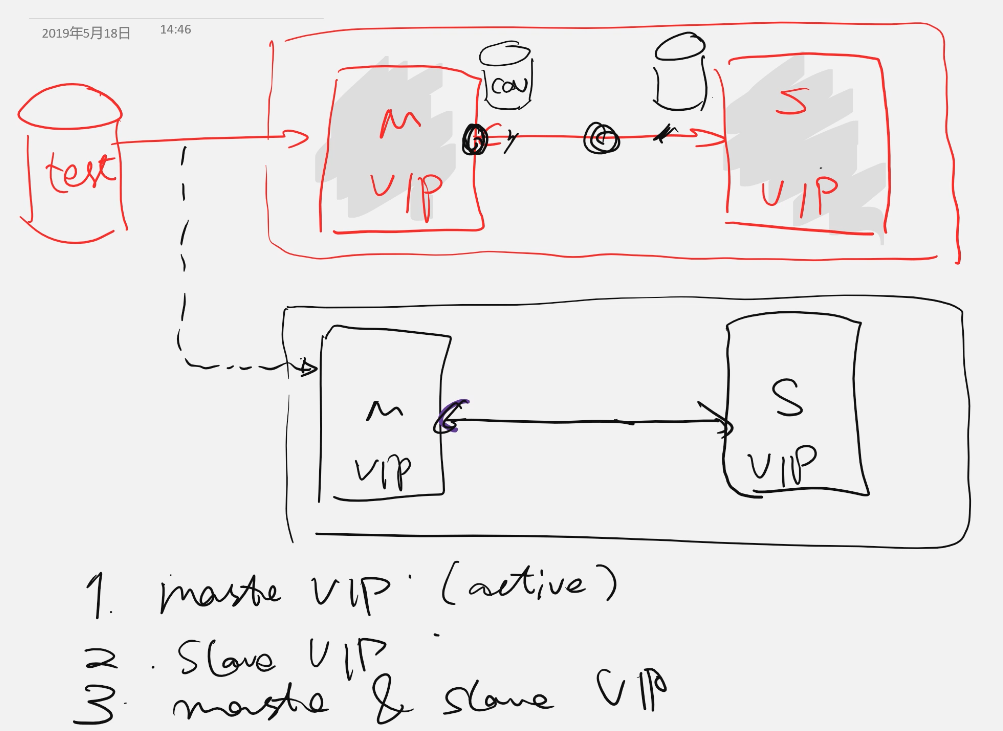 2019年5月18日 14:46
test
M
VIP
CON
S
VIP
M
VIP
S
VIP
1. mastre VIP (active)
2. Slave VIP
3. mastre & slave VIP